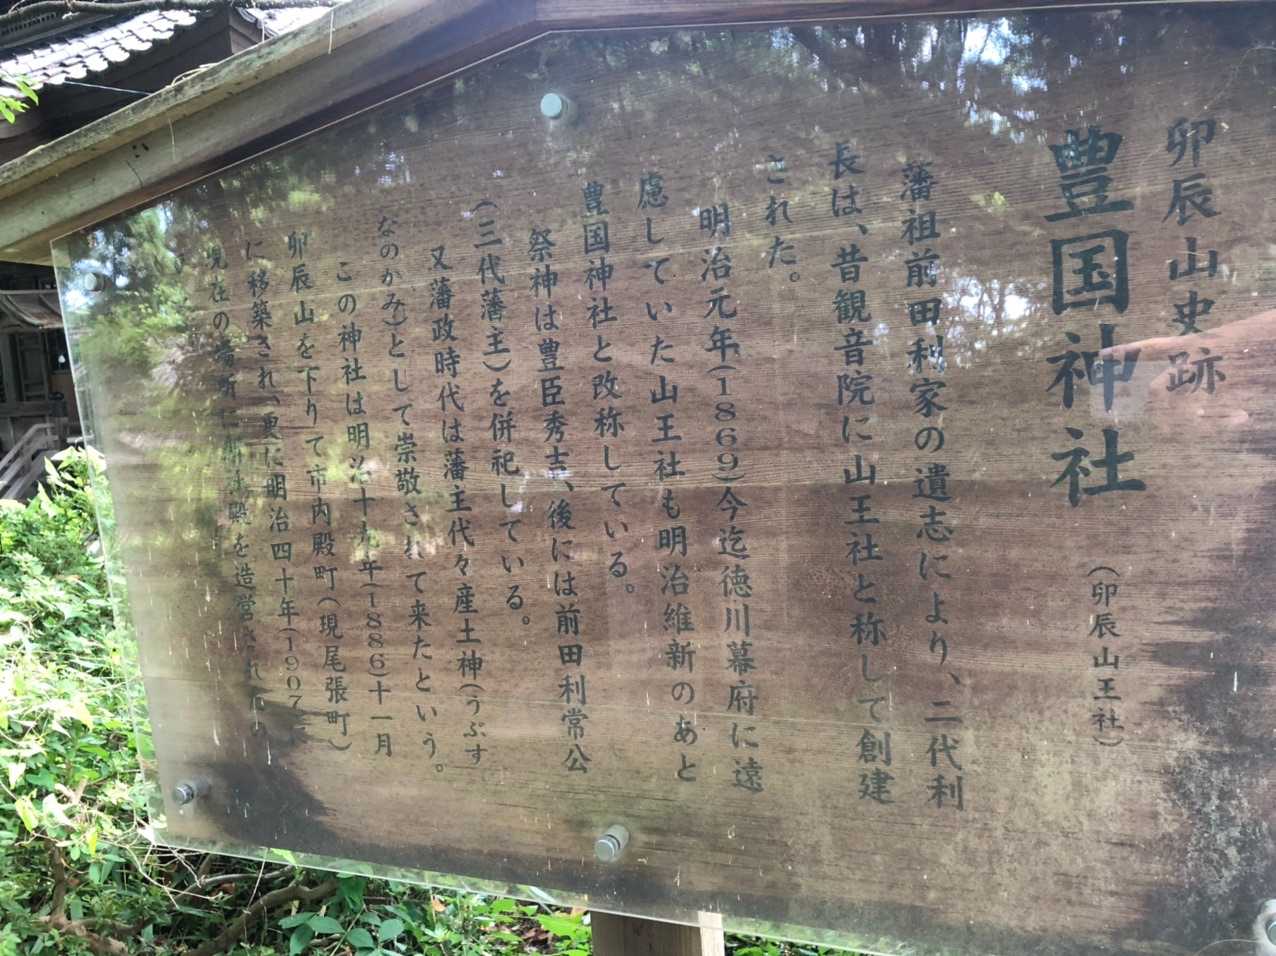 卯辰山史跡
豊国神社
(卯辰山王社)
藩祖前田利家の遺志により、二代利
長は、昔観音院に山王社と称して創建
された。
明治元年(1869)今迄徳川幕府に遠
慮していた山王社も明治維新のあと
豊国神社と改称している。
祭神は豊臣秀吉、後には前田利常公
(三代藩主)を併祀している。
又藩政時代は藩主代々産土神(うぶす
なのかみ)として崇敬されて来たという。
この神社は明治十九年(1886)十一月
卯辰山を下りて市内殿町(現尾張町)
に移築され、更に明治四十年(1907
現在の場所に新社殿を造営され